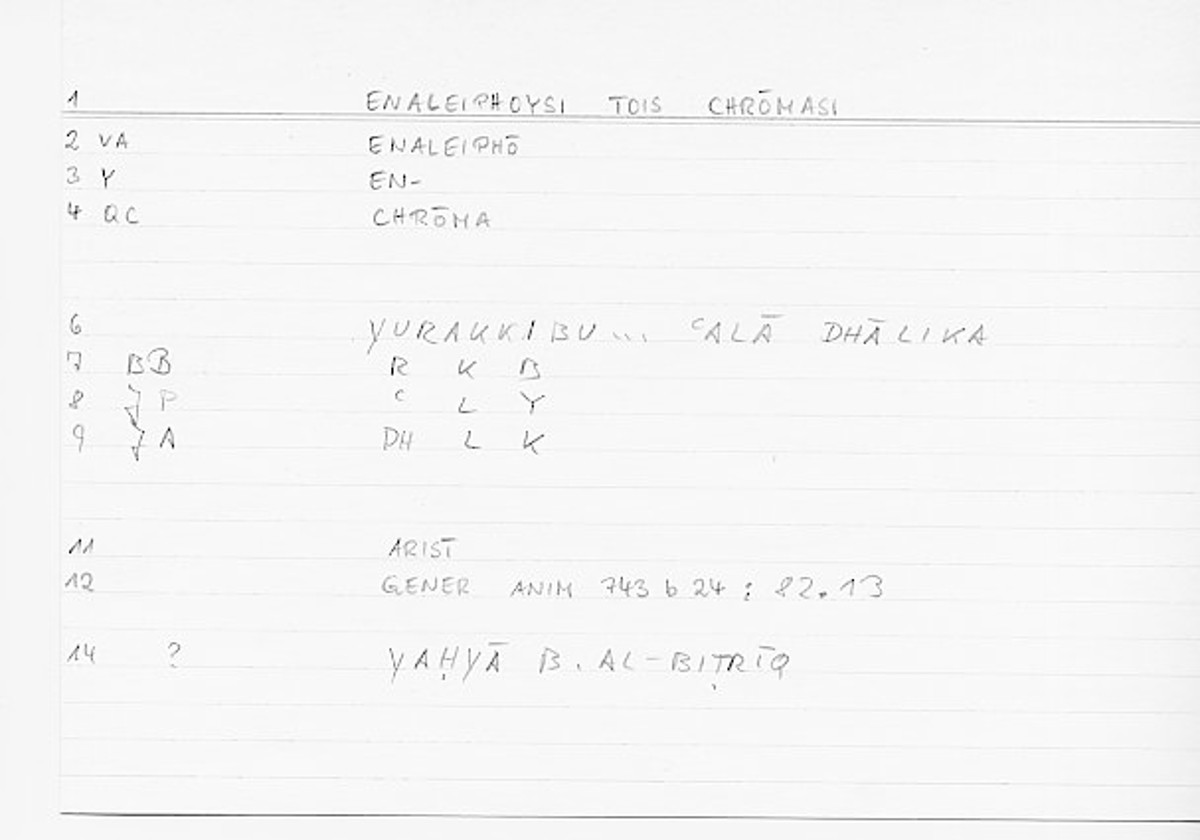 1 ENALEIPHOYSI TOIS CHRŌMASI
2 VA ENALEIPHŌ
3 Y EN-
4 QC CHRŌMA
6 YURAKKIBU... ʿALĀ DHĀLIKA
7 BB R K B
8 P ʿ L Y
9 A DH L K
11 ARIST
12 GENER ANIM 743 b 24 : 82.13
14 ? YAḤYĀ B. AL-BIṬRĪQ